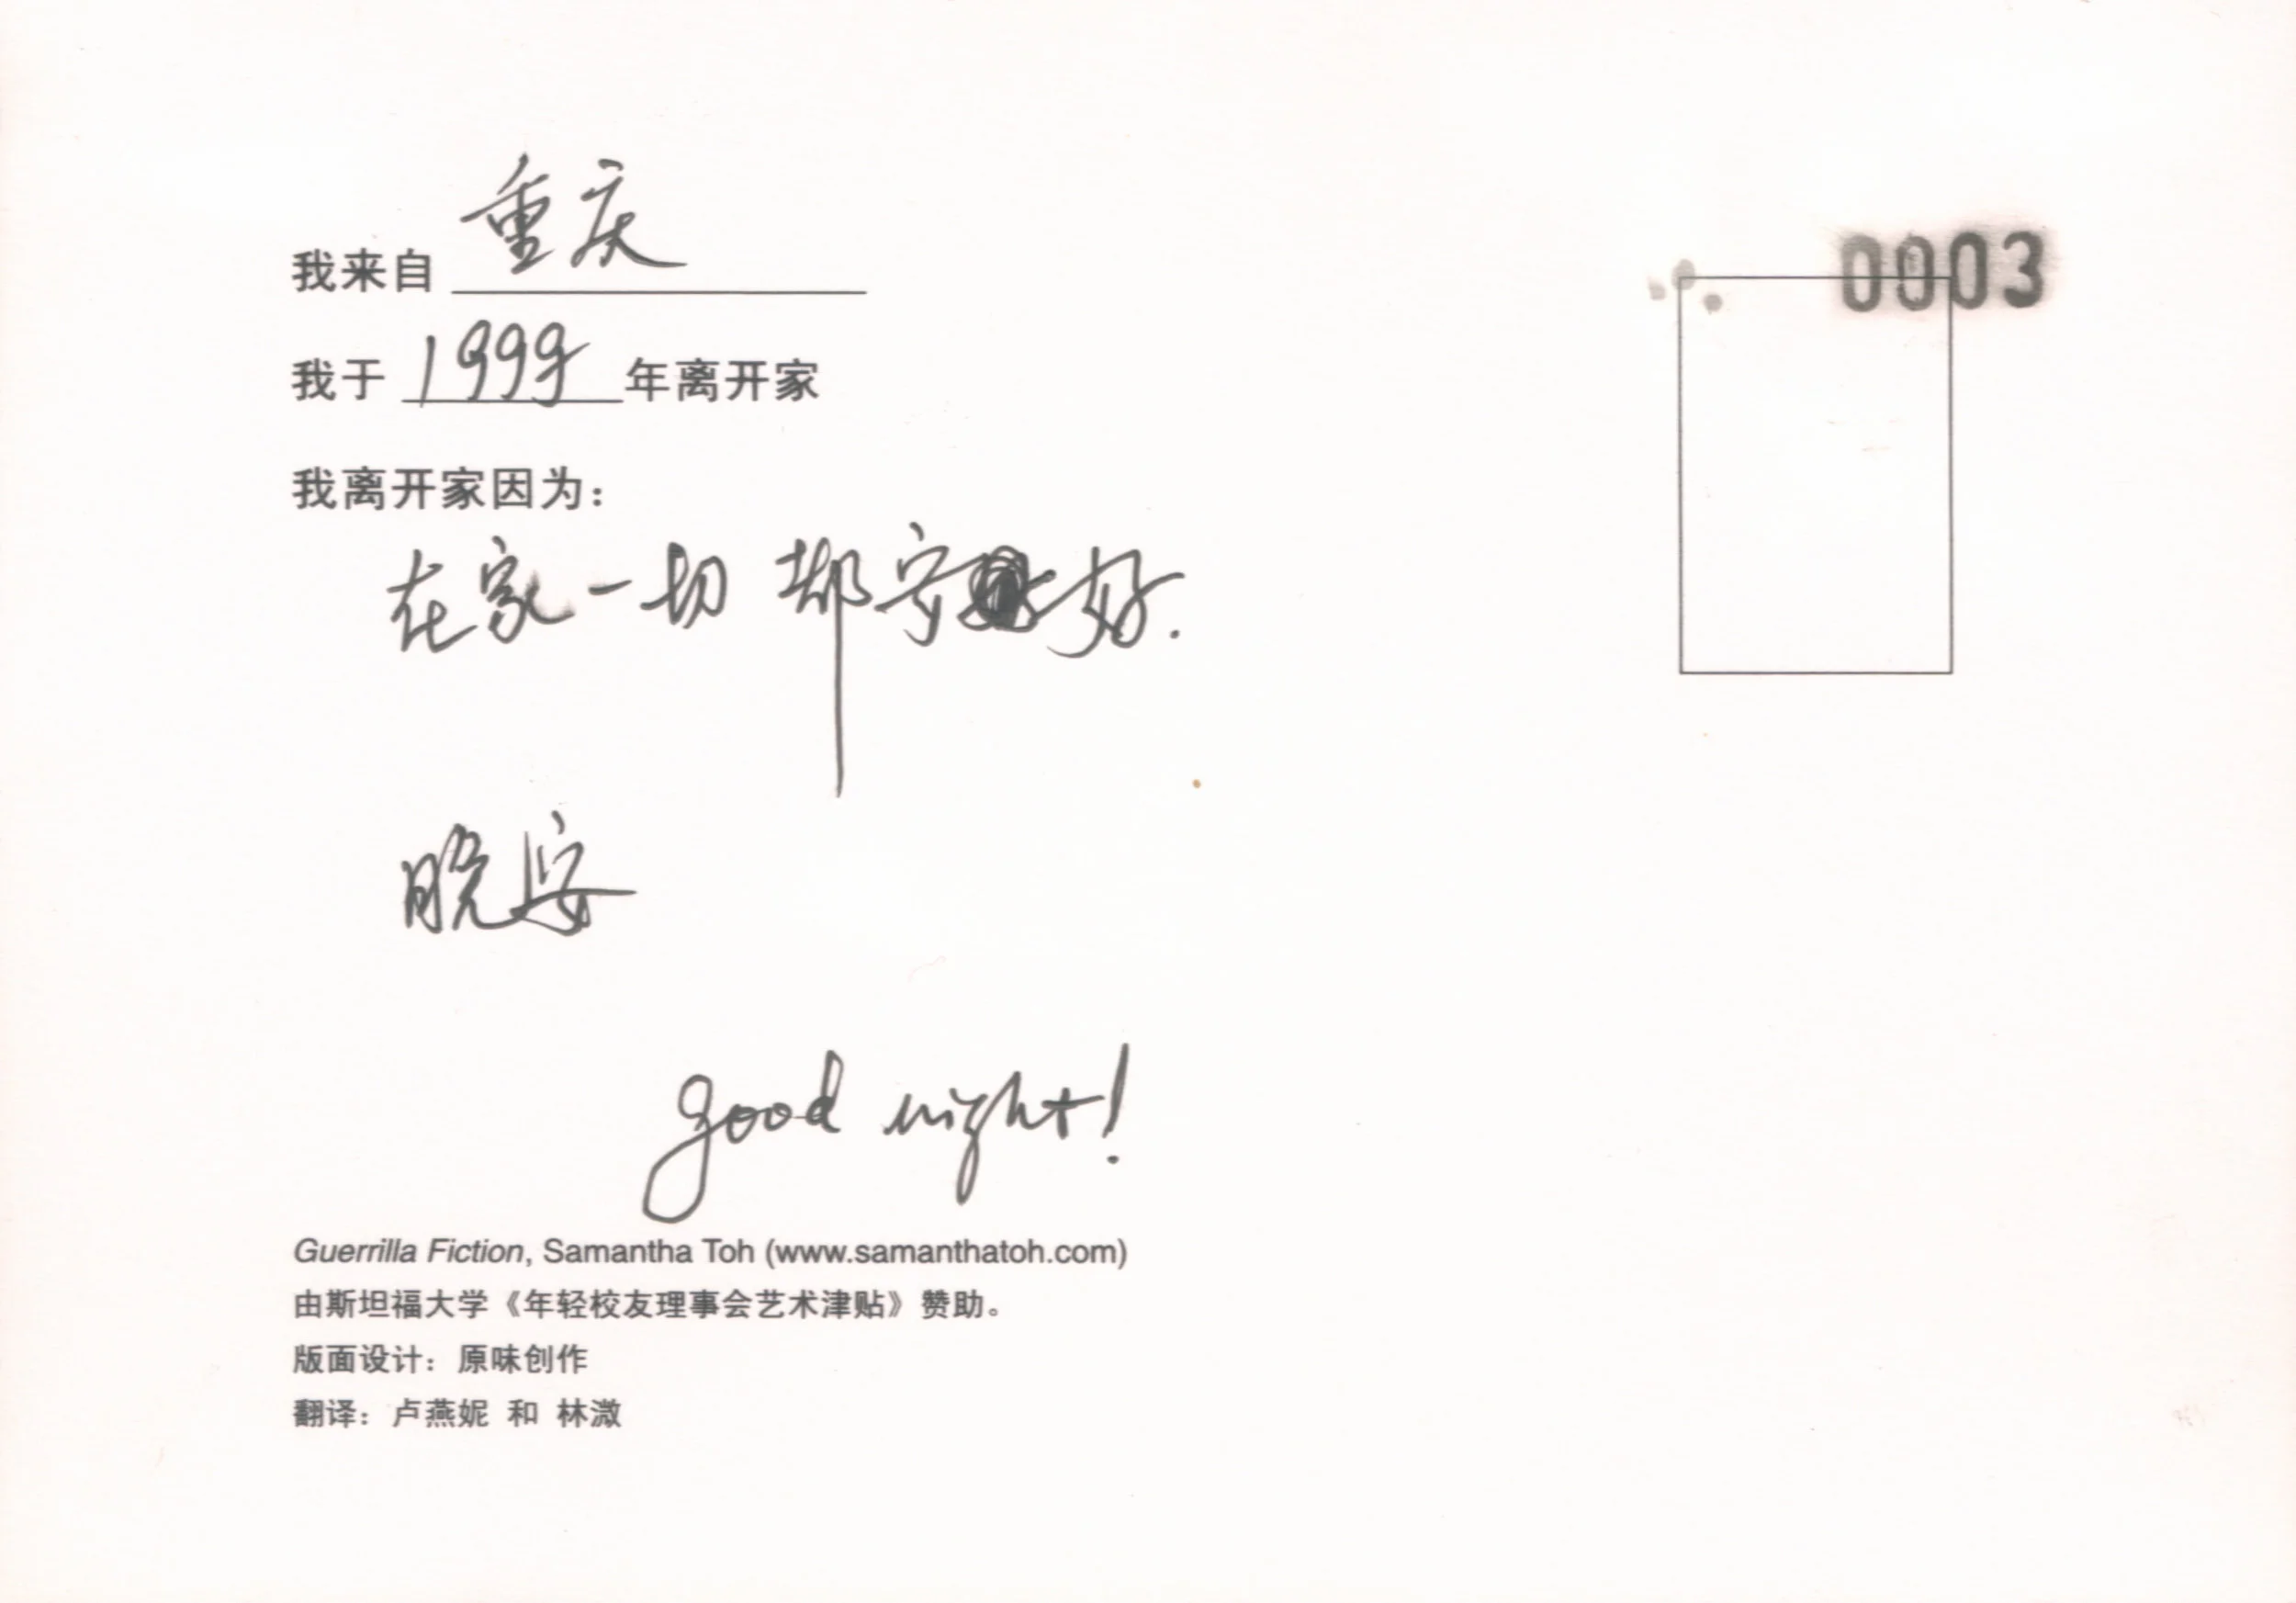 我来自 重庆
0003
我于 1999 年离开家
我离开家因为:
在家一切都安好.
晚安
good night!
Guerrilla Fiction, Samantha Toh (www.samanthatoh.com)
由斯坦福大学《年轻校友理事会艺术津贴》赞助。
版面设计:原味创作
翻译:卢燕妮 和 林溦